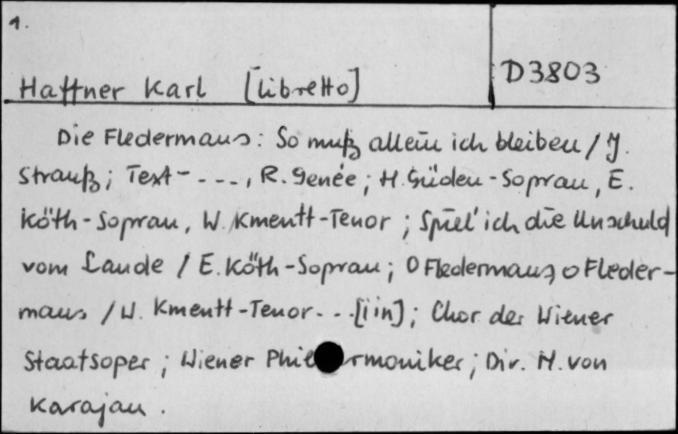 1.
Haffner Karl [libretto]
D3803
Die Fledermaus: So muß allein ich bleiben / J.
Strauß; Text - - - -, R. Genée; H. Güden - Sopran, E.
Köth - Sopran, W. Kmentt - Tenor; Spiel' ich die Unschuld
vom Lande / E. Köth - Sopran; O Fledermaus, o Fleder-
maus / W. Kmentt - Tenor - - - [i in]; Chor der Wiener
Staatsoper; Wiener Phil rmoniker; Dir. H. von
Karajan.